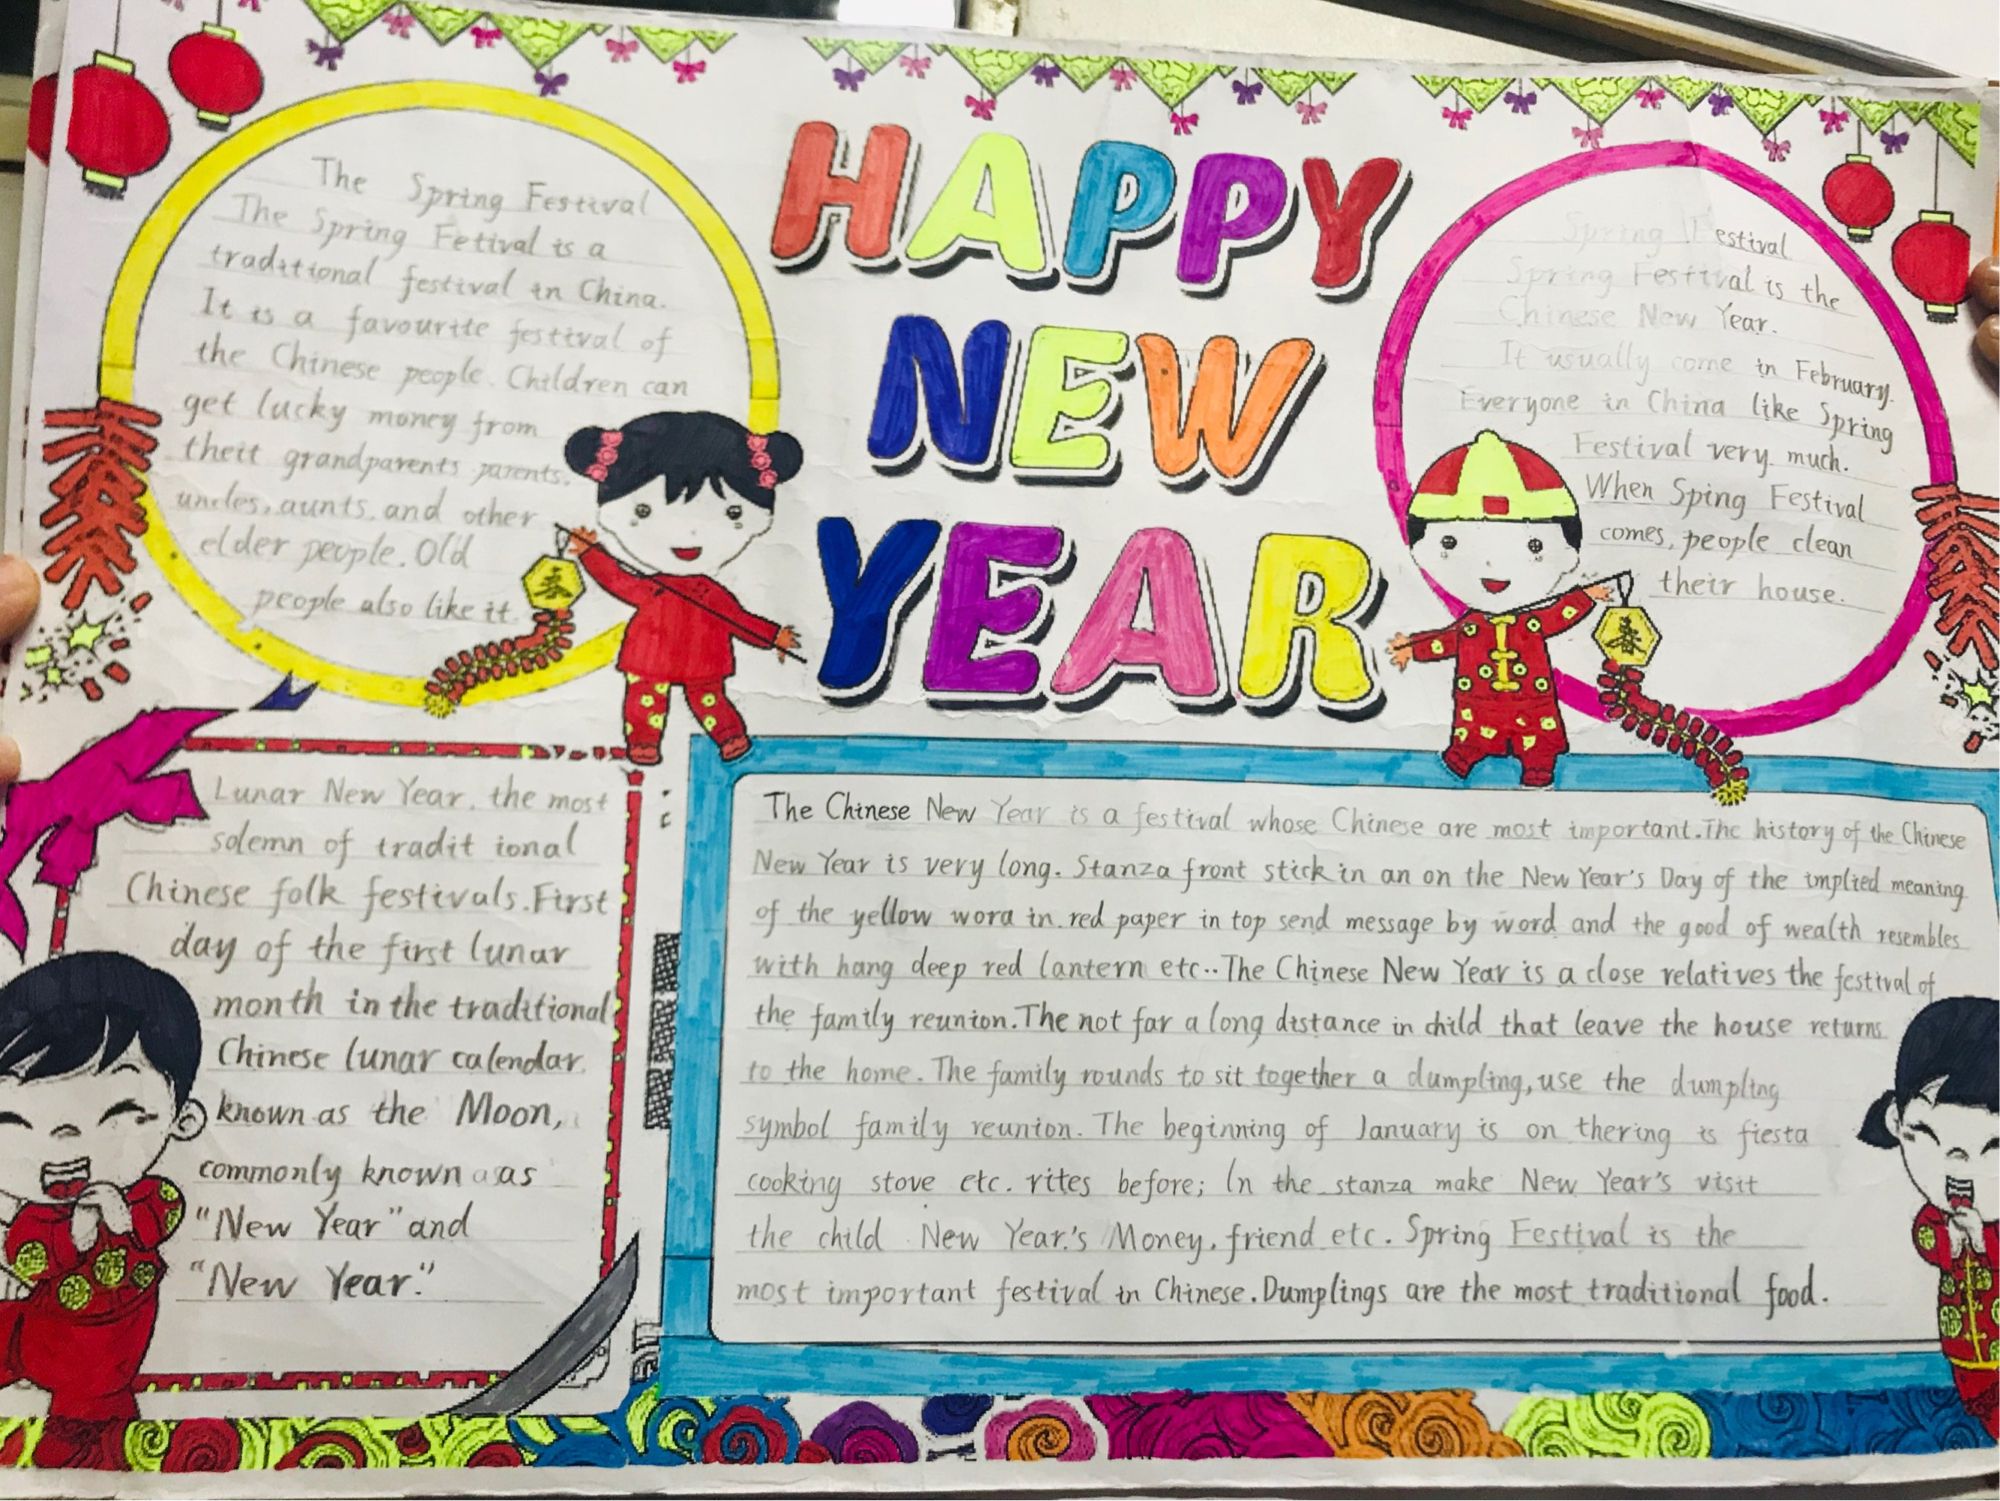 The Spring Festival
The Spring Fetival is a
traditional festival in China.
It is a favourite festival of
the Chinese people. Children can
get lucky money from
theit grandparents parents.
uncles, aunts, and other
elder people. Old
people also like it.
春
HAPPY
NEW
YEAR
Spring Festival
Spring Festival is the
Chinese New Year.
It usually come in February.
Everyone in China like Spring
Festival very much.
When Sping Festival
comes, people clean
their house.
春
Lunar New Year, the most
solemn of tradit ional
Chinese folk festivals. First
day of the first lunar
month in the traditional
Chinese lunar calendar.
known as the Moon,
commonly known as as
"New Year" and
"New Year."
The Chinese New Year is a festival whose Chinese are most important. The history of the Chinese
New Year is very long. Stanza front stick in an on the New Year's Day of the implied meaning
of the yellow wora in red paper in top send message by word and the good of wealth resembles
with hang deep red lantern etc.. The Chinese New Year is a close relatives the festival of
the family reunion. The not far a long distance in child that leave the house returns
to the home. The family rounds to sit together a dumpling, use the dumpling
symbol family reunion. The beginning of January is on thering is fiesta
cooking stove etc. rites before; In the stanza make New Year's visit
the child New Year's Money, friend etc. Spring Festival is the
most important festival in Chinese. Dumplings are the most traditional food.